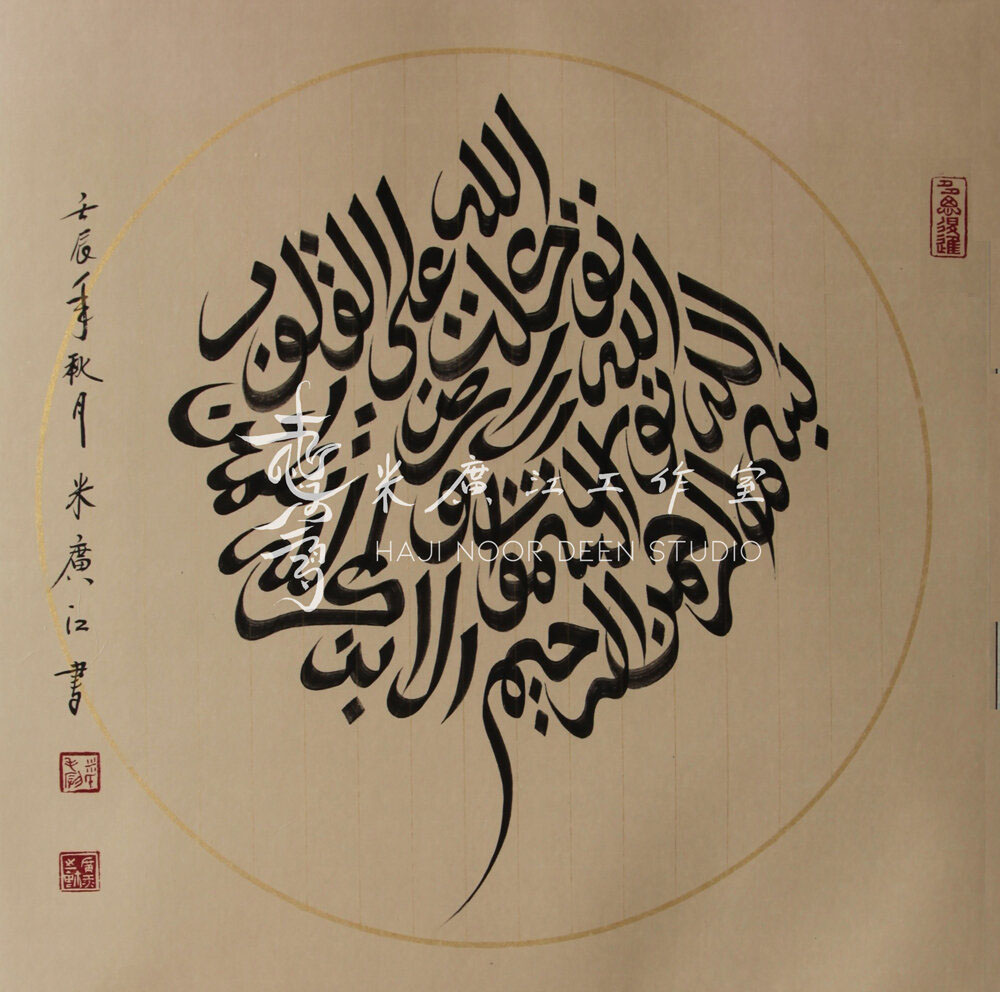 بسم الله الرحمن الرحيم
الا بذكر الله تطمئن القلوب
توكلت على الله
الله نور السموات والارض
壬辰年秋月 米廣江書
米廣江工作室
HAJI NOOR DEEN STUDIO